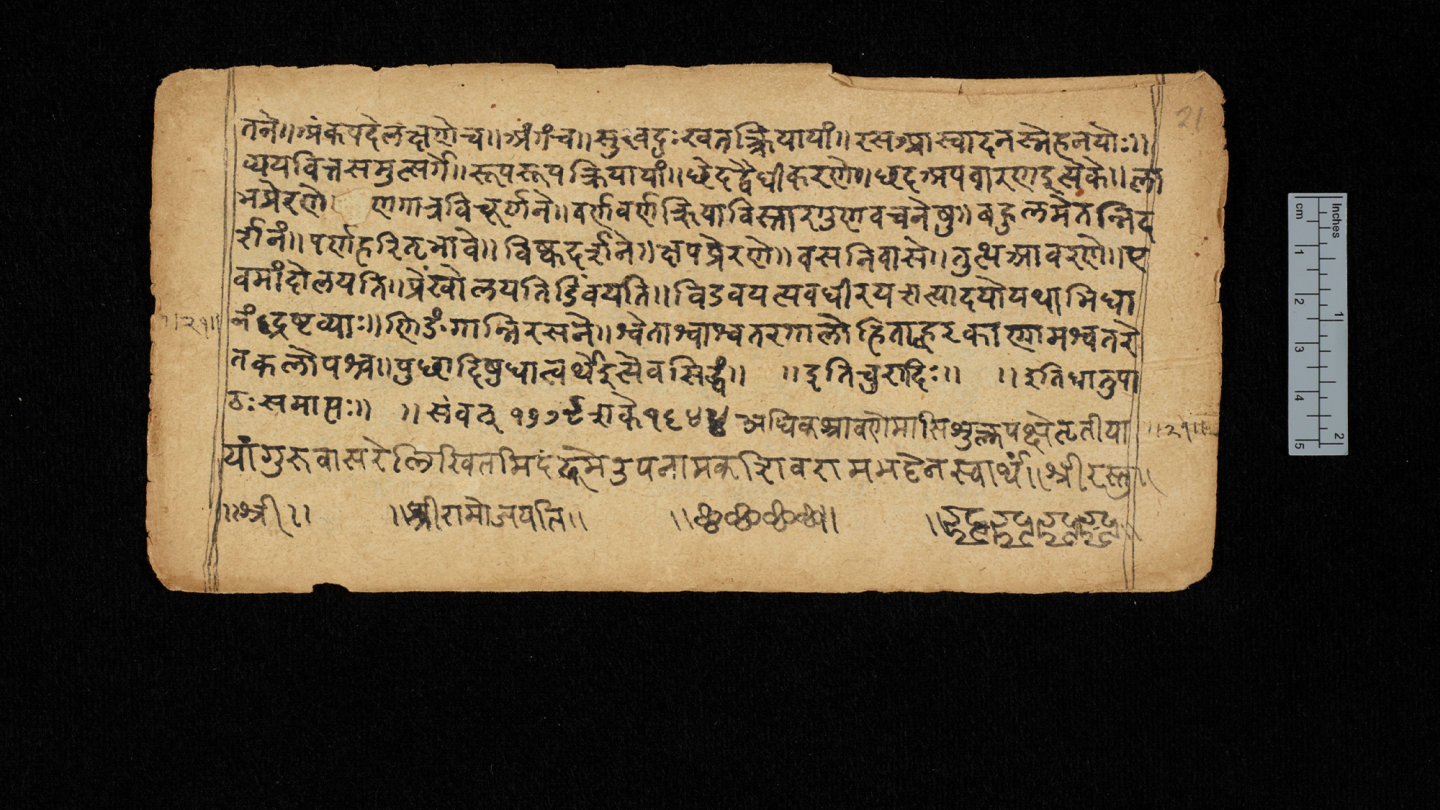 तने॥अंकपदेलक्षणेच॥अंगंच॥सुखदुःखतत्क्रियायां॥रसआस्वादनस्नेहनयोः॥
व्ययवित्तसमुत्सर्गे॥रूपरूपक्रियायां॥छेदद्वैधीकरणे॥छदअपवारणइत्येके॥ला
भप्रेरणे॥ णगात्रविचूर्णने॥वर्णवर्णक्रियाविस्तारगुणवचनेषु॥बहुलमेतन्निद
र्शनं॥पर्णहरितभावे॥विष्कदर्शने॥क्षपप्रेरणे॥वसनिवासे॥तुत्थआवरणे॥ए
वमांदोलयति॥प्रेंखोलयतिडिंवयति॥विडवयत्यवधीरयत्यादयोयथाभिधा
नंद्रष्टव्याः॥णिङंगान्निरसने॥श्वेताश्वाश्वतरगालोडिताह्वरकाणामश्वतरे
तकलोपश्च॥पुछादिषुधात्वर्थइत्येवसिद्धं॥ ॥इतिचुरादिः॥ ॥इतिधातुपा
ठःसमाप्तः॥ ॥संवत् १७७९शके१६४४ अधिकश्रावणेमासिशुक्लपक्षेतृतीया
यांगुरुवासरेलिखितमिदं उपनामक शिवरामभट्टेनस्वार्थं॥श्रीरस्तु॥
॥श्री॥ ॥श्रीरामोजयति॥ ॥छ॥
॥२१॥
॥२१॥
21
cm 1 2 3 4 5
Inches 1 2